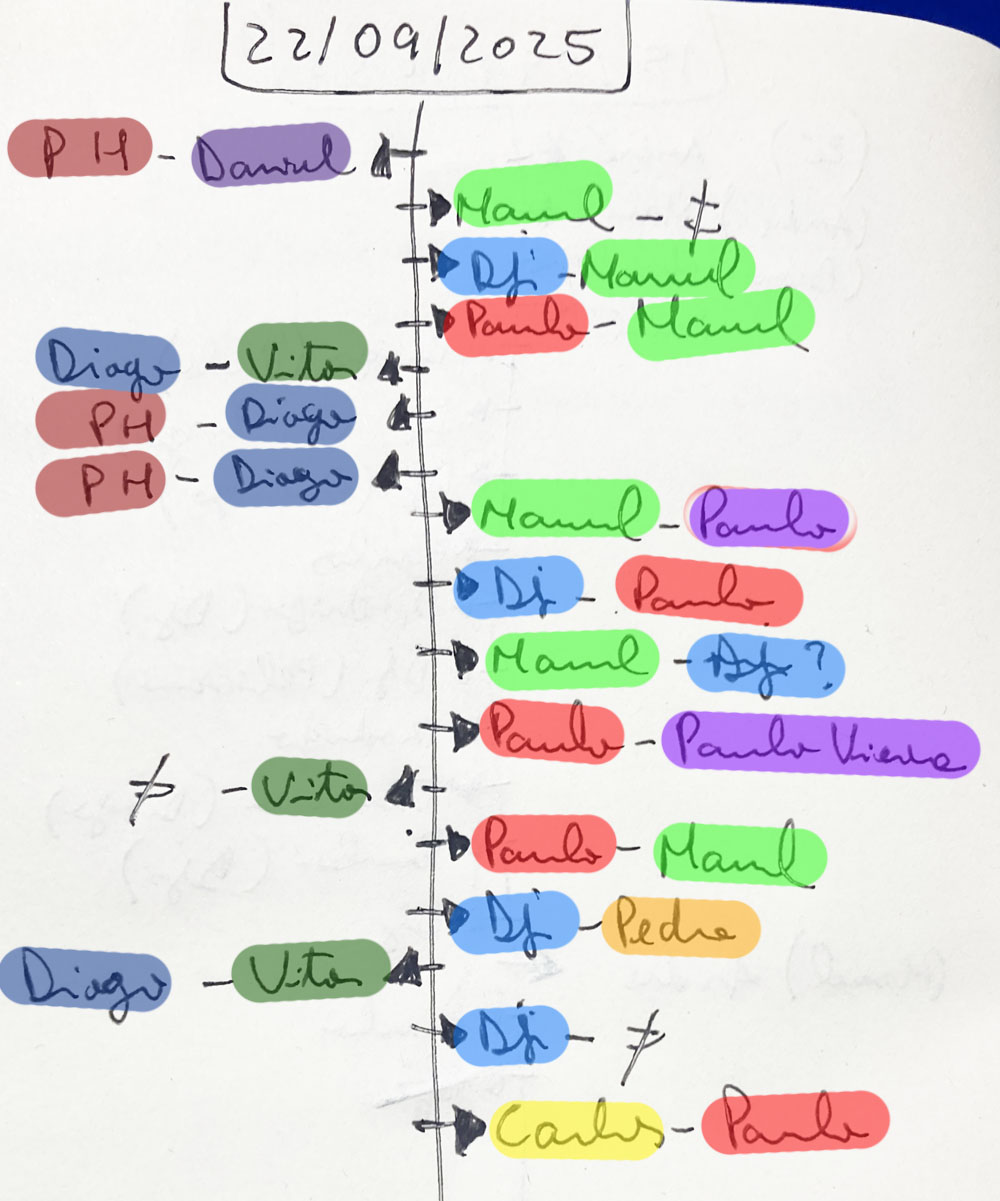 22/09/2025
PH - Daniel
Manel - ≠
Dj - Manel
Paulo - Manel
Diogo - Vitor
PH - Diogo
PH - Diogo
Manel - Paulo
Dj - Paulo
Manel - Dj?
Paulo - Paulo Vieira
≠ - Vitor
Paulo - Manel
Dj - Pedro
Diogo - Vitor
Dj - ≠
Carlos - Paulo